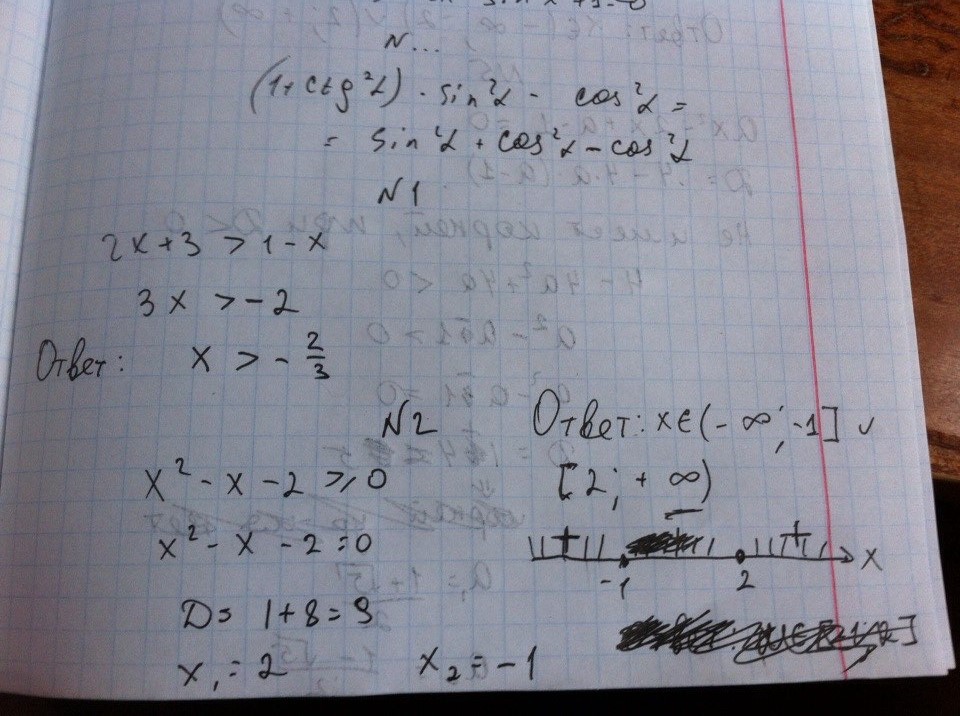 N...
(1+ctg²α) · sin²α - cos²α =
= sin²α + cos²α - cos²α
N1
2x+3 > 1-x
3x > -2
Ответ: x > - 2/3
N2
x² - x - 2 ⩾ 0
x² - x - 2 = 0
D = 1+8=9
x₁ = 2 x₂ = -1
Ответ: x∈(-∞; -1] ∪
[2; +∞)
+ +
-1 2 x